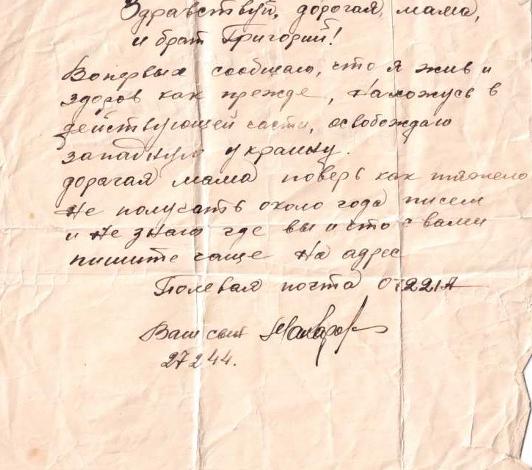 Здравствуй, дорогая, мама,
и брат Григорий!
Вопервых сообщаю, что я жив и
здоров как прежде, нахожусь в
действующей части, освобождаю
западную украину.
дорагая мама поверь как тяжело
не получать около года писем
и не знаю где вы и что с вами
пишите чаще на адрес
Полевая почта 07221А
Ваш сын Макаров
27 2 44.